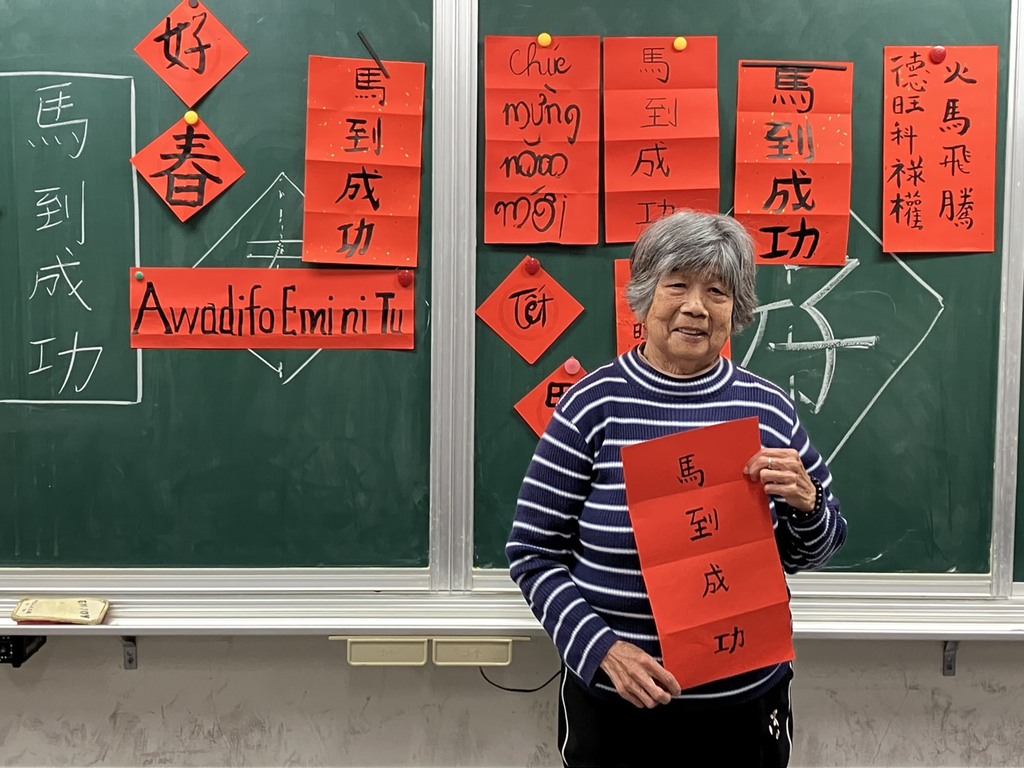 馬到成功
好
春
馬到成功
Awadifo Emi ni Tu
Chúc
mừng
năm
mới
馬到成功
馬到成功
火馬飛騰
德旺科祿權
Tết
好
馬到成功